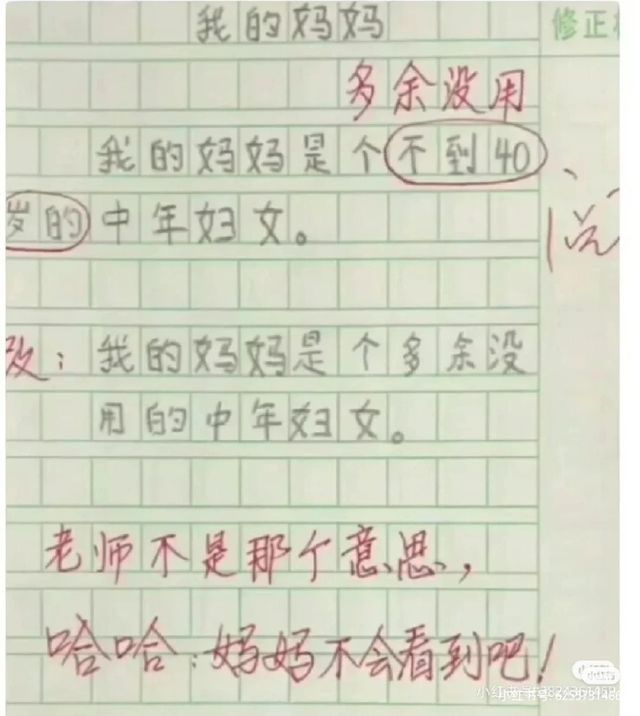 我的妈妈
修正
多余没用
我的妈妈是个不到40
岁的中年妇女。
改：我的妈妈是个多余没
用的中年妇女。
老师不是那个意思，
哈哈：妈妈不会看到吧！
小红书